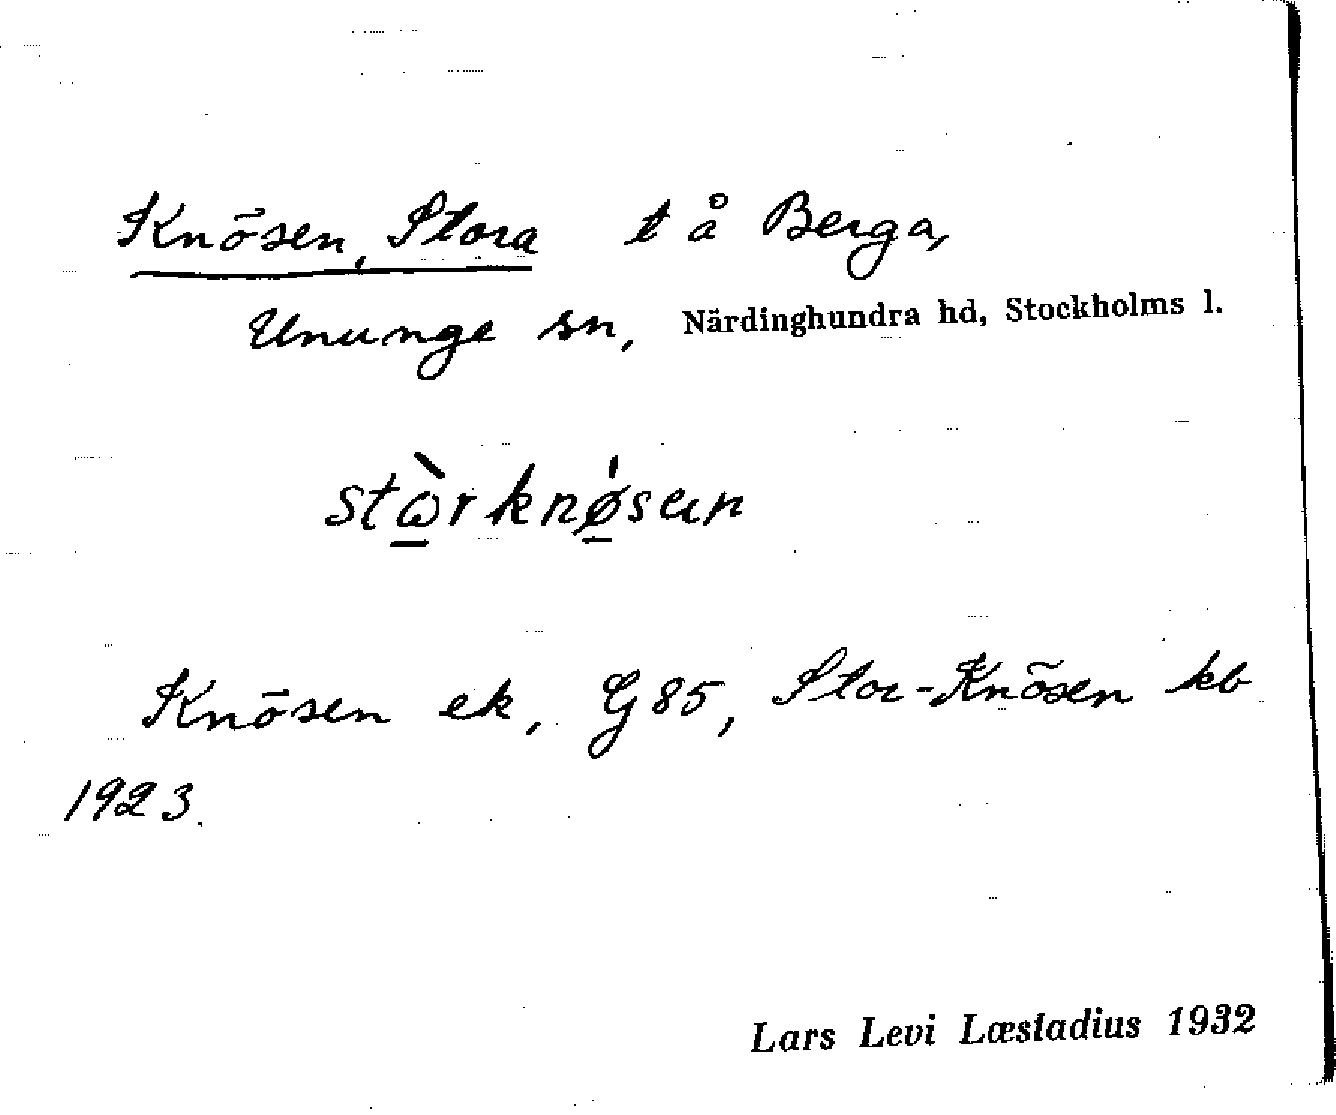 Knösen, Stora t å Berga,
Ununge sn, Närdinghundra hd, Stockholms l.
stὼrknǿsεn
Knösen ek, G85, Stor-Knösen kb
1923.
Lars Levi Læstadius 1932